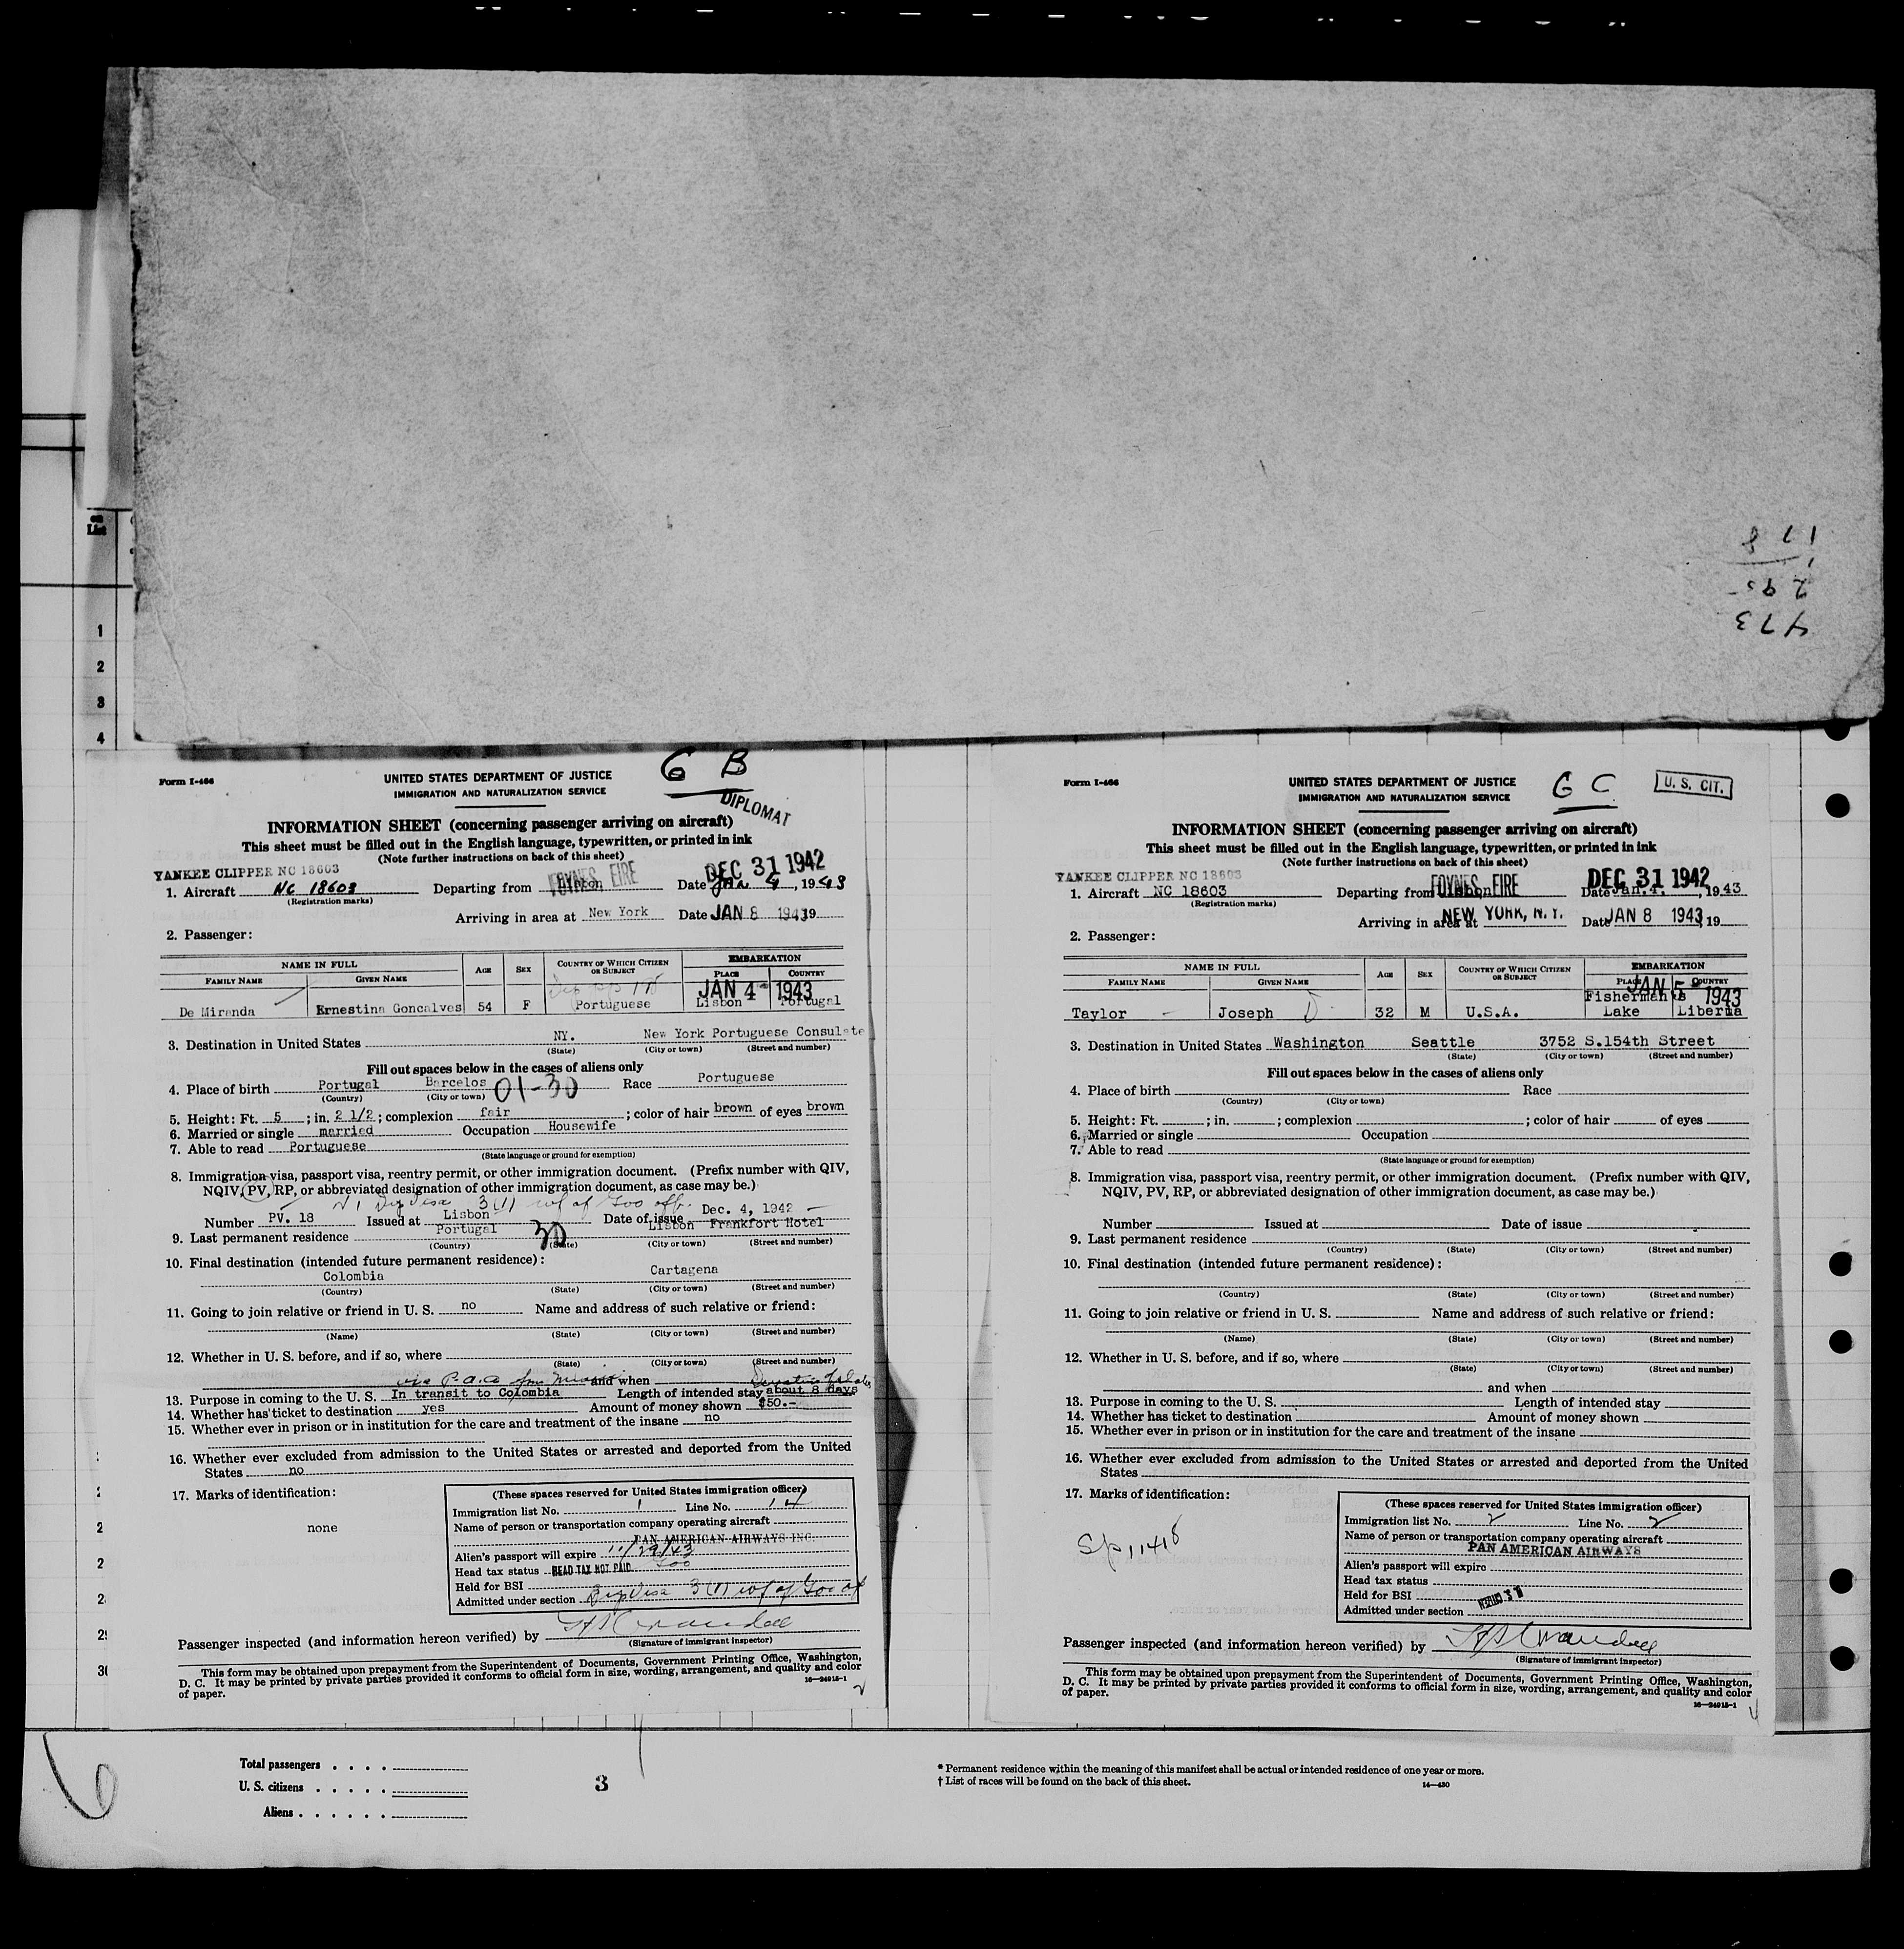 178
295
473
on
List
1
2
3
4
Form I-466
UNITED STATES DEPARTMENT OF JUSTICE
IMMIGRATION AND NATURALIZATION SERVICE
6 B
DIPLOMAT
INFORMATION SHEET (concerning passenger arriving on aircraft)
This sheet must be filled out in the English language, typewritten, or printed in ink
(Note further instructions on back of this sheet)
YANKEE CLIPPER NC 18603
DEC 31 1942
1. Aircraft NC 18603 Departing from Lisbon FOYNES EIRE Date Jan 4, 1943
(Registration marks)
Arriving in area at New York Date JAN 8 1943 19
2. Passenger:
NAME IN FULL AGE SEX COUNTRY OF WHICH CITIZEN OR SUBJECT EMBARKATION
FAMILY NAME GIVEN NAME PLACE COUNTRY
JAN 4 1943
De Miranda Ernestina Goncalves 54 F Portuguese Lisbon Portugal
3. Destination in United States NY. New York Portuguese Consulate
(State) (City or town) (Street and number)
Fill out spaces below in the cases of aliens only
4. Place of birth Portugal Barcelos 01-30 Race Portuguese
(Country) (City or town)
5. Height: Ft. 5; in. 2 1/2; complexion fair; color of hair brown of eyes brown
6. Married or single married Occupation Housewife
7. Able to read Portuguese
(State language or ground for exemption)
8. Immigration visa, passport visa, reentry permit, or other immigration document. (Prefix number with QIV,
NQIV, PV, RP, or abbreviated designation of other immigration document, as case may be.)
3(1) wf of Gov off.
Number PV. 18 Issued at Lisbon Date of issue Dec. 4, 1942
9. Last permanent residence Portugal 30 Lisbon Frankfort Hotel
(Country) (State) (City or town) (Street and number)
10. Final destination (intended future permanent residence):
Colombia Cartagena
(Country) (State) (City or town) (Street and number)
11. Going to join relative or friend in U. S. no Name and address of such relative or friend:
(Name) (State) (City or town) (Street and number)
12. Whether in U. S. before, and if so, where
(State) (City or town) (Street and number)
via P.A.A. and when
13. Purpose in coming to the U. S. In transit to Colombia Length of intended stay about 8 days
14. Whether has ticket to destination yes Amount of money shown $50.-
15. Whether ever in prison or in institution for the care and treatment of the insane no
16. Whether ever excluded from admission to the United States or arrested and deported from the United
States no
17. Marks of identification:
none
(These spaces reserved for United States immigration officer)
Immigration list No. 1 Line No. 14
Name of person or transportation company operating aircraft
PAN AMERICAN AIRWAYS INC.
Alien's passport will expire 11/29/43
Head tax status HEAD TAX NOT PAID
Held for BSI
Admitted under section Dip Visa 3(1) wf of Gov of
Passenger inspected (and information hereon verified) by HS Crandall
(Signature of immigrant inspector)
This form may be obtained upon prepayment from the Superintendent of Documents, Government Printing Office, Washington,
D. C. It may be printed by private parties provided it conforms to official form in size, wording, arrangement, and quality and color
of paper.
16—24915-1
Form I-466
UNITED STATES DEPARTMENT OF JUSTICE
IMMIGRATION AND NATURALIZATION SERVICE
6 C
U. S. CIT.
INFORMATION SHEET (concerning passenger arriving on aircraft)
This sheet must be filled out in the English language, typewritten, or printed in ink
(Note further instructions on back of this sheet)
YANKEE CLIPPER NC 18603
DEC 31 1942
1. Aircraft NC 18603 Departing from Lisbon FOYNES, EIRE Date Jan. 4, 1943
(Registration marks)
Arriving in area at NEW YORK, N.Y. Date JAN 8 1943, 19
2. Passenger:
NAME IN FULL AGE SEX COUNTRY OF WHICH CITIZEN OR SUBJECT EMBARKATION
FAMILY NAME GIVEN NAME PLACE COUNTRY
JAN 5 1943
Taylor Joseph D 32 M U.S.A. Fisherman's Lake Liberia
3. Destination in United States Washington Seattle 3752 S.154th Street
(State) (City or town) (Street and number)
Fill out spaces below in the cases of aliens only
4. Place of birth Race
(Country) (City or town)
5. Height: Ft. ; in. ; complexion ; color of hair of eyes
6. Married or single Occupation
7. Able to read
(State language or ground for exemption)
8. Immigration visa, passport visa, reentry permit, or other immigration document. (Prefix number with QIV,
NQIV, PV, RP, or abbreviated designation of other immigration document, as case may be.)
Number Issued at Date of issue
9. Last permanent residence
(Country) (State) (City or town) (Street and number)
10. Final destination (intended future permanent residence):
(Country) (State) (City or town) (Street and number)
11. Going to join relative or friend in U. S. Name and address of such relative or friend:
(Name) (State) (City or town) (Street and number)
12. Whether in U. S. before, and if so, where
(State) (City or town) (Street and number)
and when
13. Purpose in coming to the U. S. Length of intended stay
14. Whether has ticket to destination Amount of money shown
15. Whether ever in prison or in institution for the care and treatment of the insane
16. Whether ever excluded from admission to the United States or arrested and deported from the United
States
17. Marks of identification:
S/p 11418
(These spaces reserved for United States immigration officer)
Immigration list No. 2 Line No. 2
Name of person or transportation company operating aircraft
PAN AMERICAN AIRWAYS
Alien's passport will expire
Head tax status
Held for BSI
Admitted under section
Passenger inspected (and information hereon verified) by HS Crandall
(Signature of immigrant inspector)
This form may be obtained upon prepayment from the Superintendent of Documents, Government Printing Office, Washington,
D. C. It may be printed by private parties provided it conforms to official form in size, wording, arrangement, and quality and color
of paper.
16—24915-1
6
Total passengers . . . .
U. S. citizens . . . . .
Aliens . . . . . .
3
* Permanent residence within the meaning of this manifest shall be actual or intended residence of one year or more.
† List of races will be found on the back of this sheet.
14—430